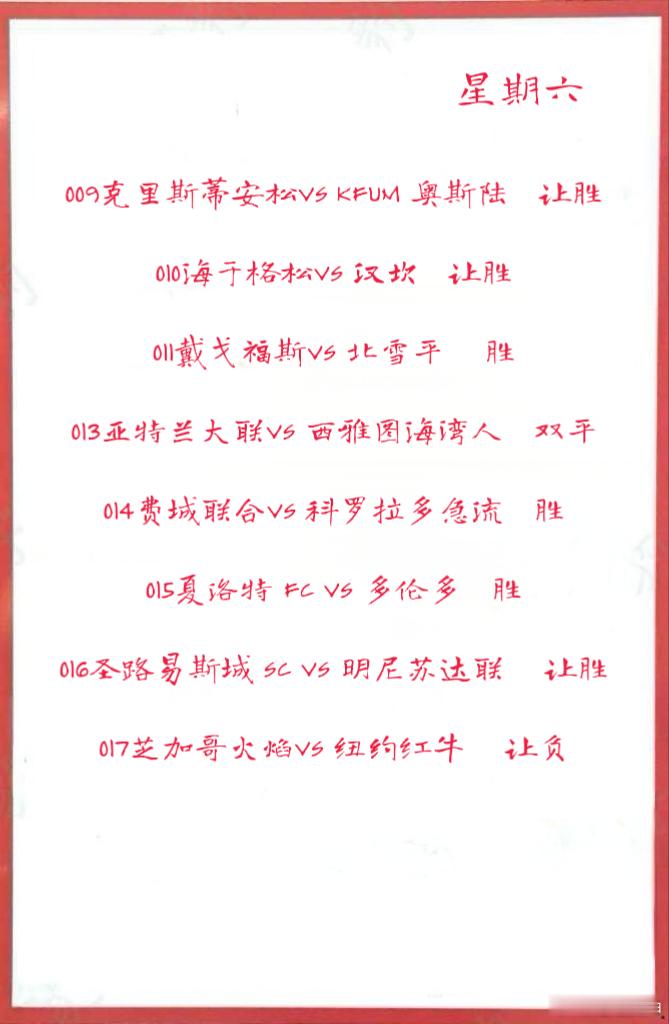 星期六
009克里斯蒂安松VS KFUM 奥斯陆 让胜
010海于格松VS 汉坎 让胜
011戴戈福斯VS 北雪平 胜
013亚特兰大联VS 西雅图海湾人 双平
014费城联合VS 科罗拉多急流 胜
015夏洛特 FC VS 多伦多 胜
016圣路易斯城 SC VS 明尼苏达联 让胜
017芝加哥火焰VS 纽约红牛 让负